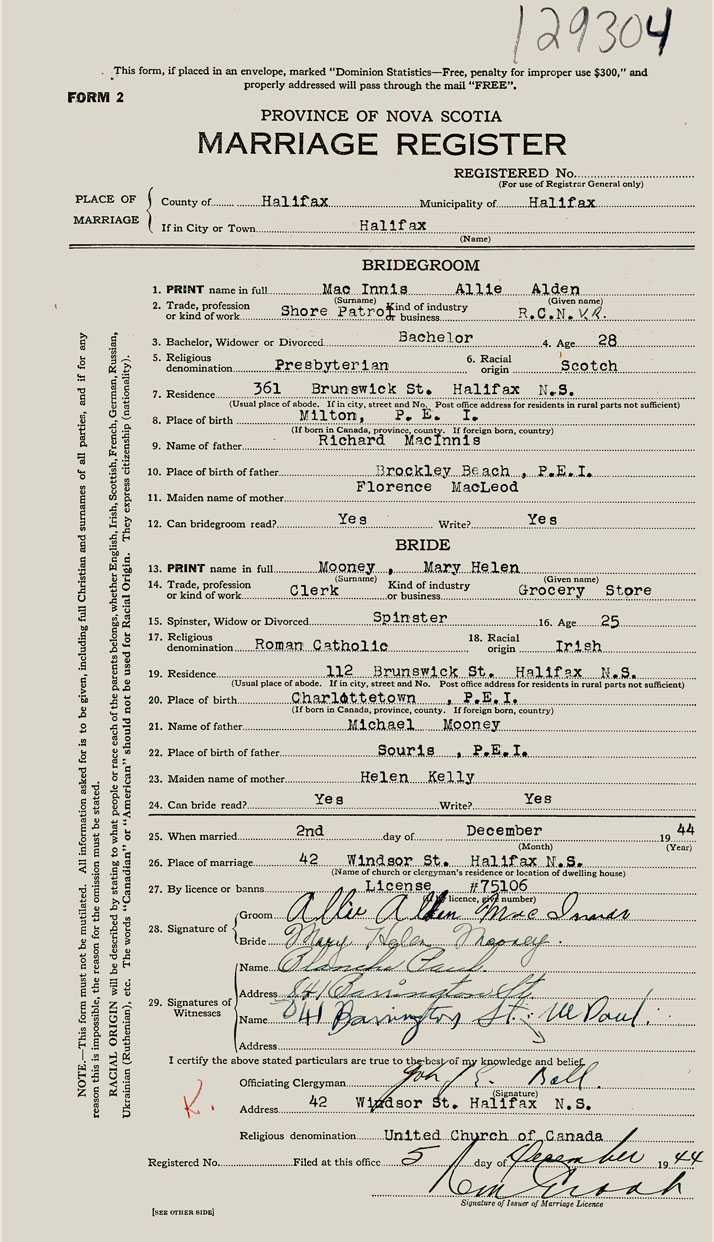 129304
This form, if placed in an envelope, marked “Dominion Statistics—Free, penalty for improper use $300,” and
properly addressed will pass through the mail “FREE”.
FORM 2
PROVINCE OF NOVA SCOTIA
MARRIAGE REGISTER
REGISTERED No.
(For use of Registrar General only)
PLACE OF MARRIAGE
County of Halifax Municipality of Halifax
If in City or Town Halifax
(Name)
BRIDEGROOM
1. PRINT name in full Mac Innis Allie Alden
(Surname) (Given name)
2. Trade, profession or kind of work Shore Patrol Kind of industry or business R.C.N.V.R.
3. Bachelor, Widower or Divorced Bachelor 4. Age 28
5. Religious denomination Presbyterian 6. Racial origin Scotch
7. Residence 361 Brunswick St. Halifax N.S.
(Usual place of abode. If in city, street and No. Post office address for residents in rural parts not sufficient)
8. Place of birth Milton, P. E. I.
(If born in Canada, province, county. If foreign born, country)
9. Name of father Richard MacInnis
10. Place of birth of father Brockley Beach , P.E.I.
11. Maiden name of mother Florence MacLeod
12. Can bridegroom read? Yes Write? Yes
BRIDE
13. PRINT name in full Mooney , Mary Helen
(Surname) (Given name)
14. Trade, profession or kind of work Clerk Kind of industry or business Grocery Store
15. Spinster, Widow or Divorced Spinster 16. Age 25
17. Religious denomination Roman Catholic 18. Racial origin Irish
19. Residence 112 Brunswick St. Halifax N.S.
(Usual place of abode. If in city, street and No. Post office address for residents in rural parts not sufficient)
20. Place of birth Charlottetown , P.E.I.
(If born in Canada, province, county. If foreign born, country)
21. Name of father Michael Mooney
22. Place of birth of father Souris , P.E.I.
23. Maiden name of mother Helen Kelly
24. Can bride read? Yes Write? Yes
25. When married 2nd day of December 1944
(Month) (Year)
26. Place of marriage 42 Windsor St. Halifax N.S.
(Name of church or clergyman's residence or location of dwelling house)
27. By licence or banns License #75106
(If by licence, give number)
28. Signature of
Groom Allie Alden Mac Innis
Bride Mary Helen Mooney.
29. Signatures of Witnesses
Name Blanche Paul.
Address 841 Barrington St.
Name 841 Barrington St. W Paul.
Address
I certify the above stated particulars are true to the best of my knowledge and belief.
Officiating Clergyman John E. Bell.
(Signature)
Address 42 Windsor St. Halifax N.S.
K.
Religious denomination United Church of Canada
Registered No. Filed at this office 5 day of December 1944
Signature of Issuer of Marriage Licence
[SEE OTHER SIDE]
NOTE.—This form must not be mutilated. All information asked for is to be given, including full Christian and surnames of all parties, and if for any
reason this is impossible, the reason for the omission must be stated.
RACIAL ORIGIN will be described by stating to what people or race each of the parents belongs, whether English, Irish, Scottish, French, German, Russian,
Ukrainian (Ruthenian), etc. The words “Canadian” or “American” should not be used for Racial Origin. They express citizenship (nationality).